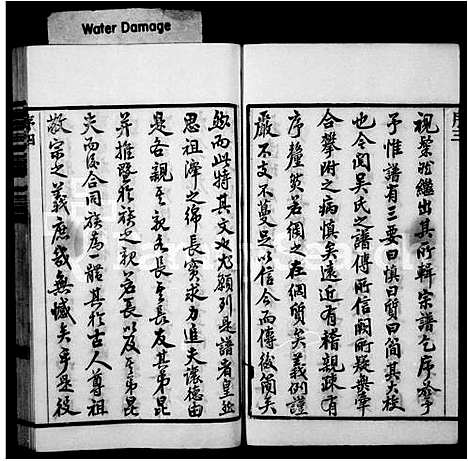 Water Damage
序三
視槩然繼出其所輯宗譜乞序於予
予惟譜有三要曰慎曰質曰簡其大校
也今閱吳氏之譜傳所信闕所疑無牽
合攀附之病慎矣遠近有稽親疎有
序釐然若網之在綱質矣義例謹
嚴不支不蔓足以信今而傳後簡矣
然而此特其文也尤願列是譜者皇然
思祖澤之綿長穷求力追夫讓德由
是各親其親各長其長及其弟昆
并推暨於族之親若長以及其弟昆
夫而後合同族為一體其於古人尊祖
敬宗之義庶幾無憾矣乎是役
序四